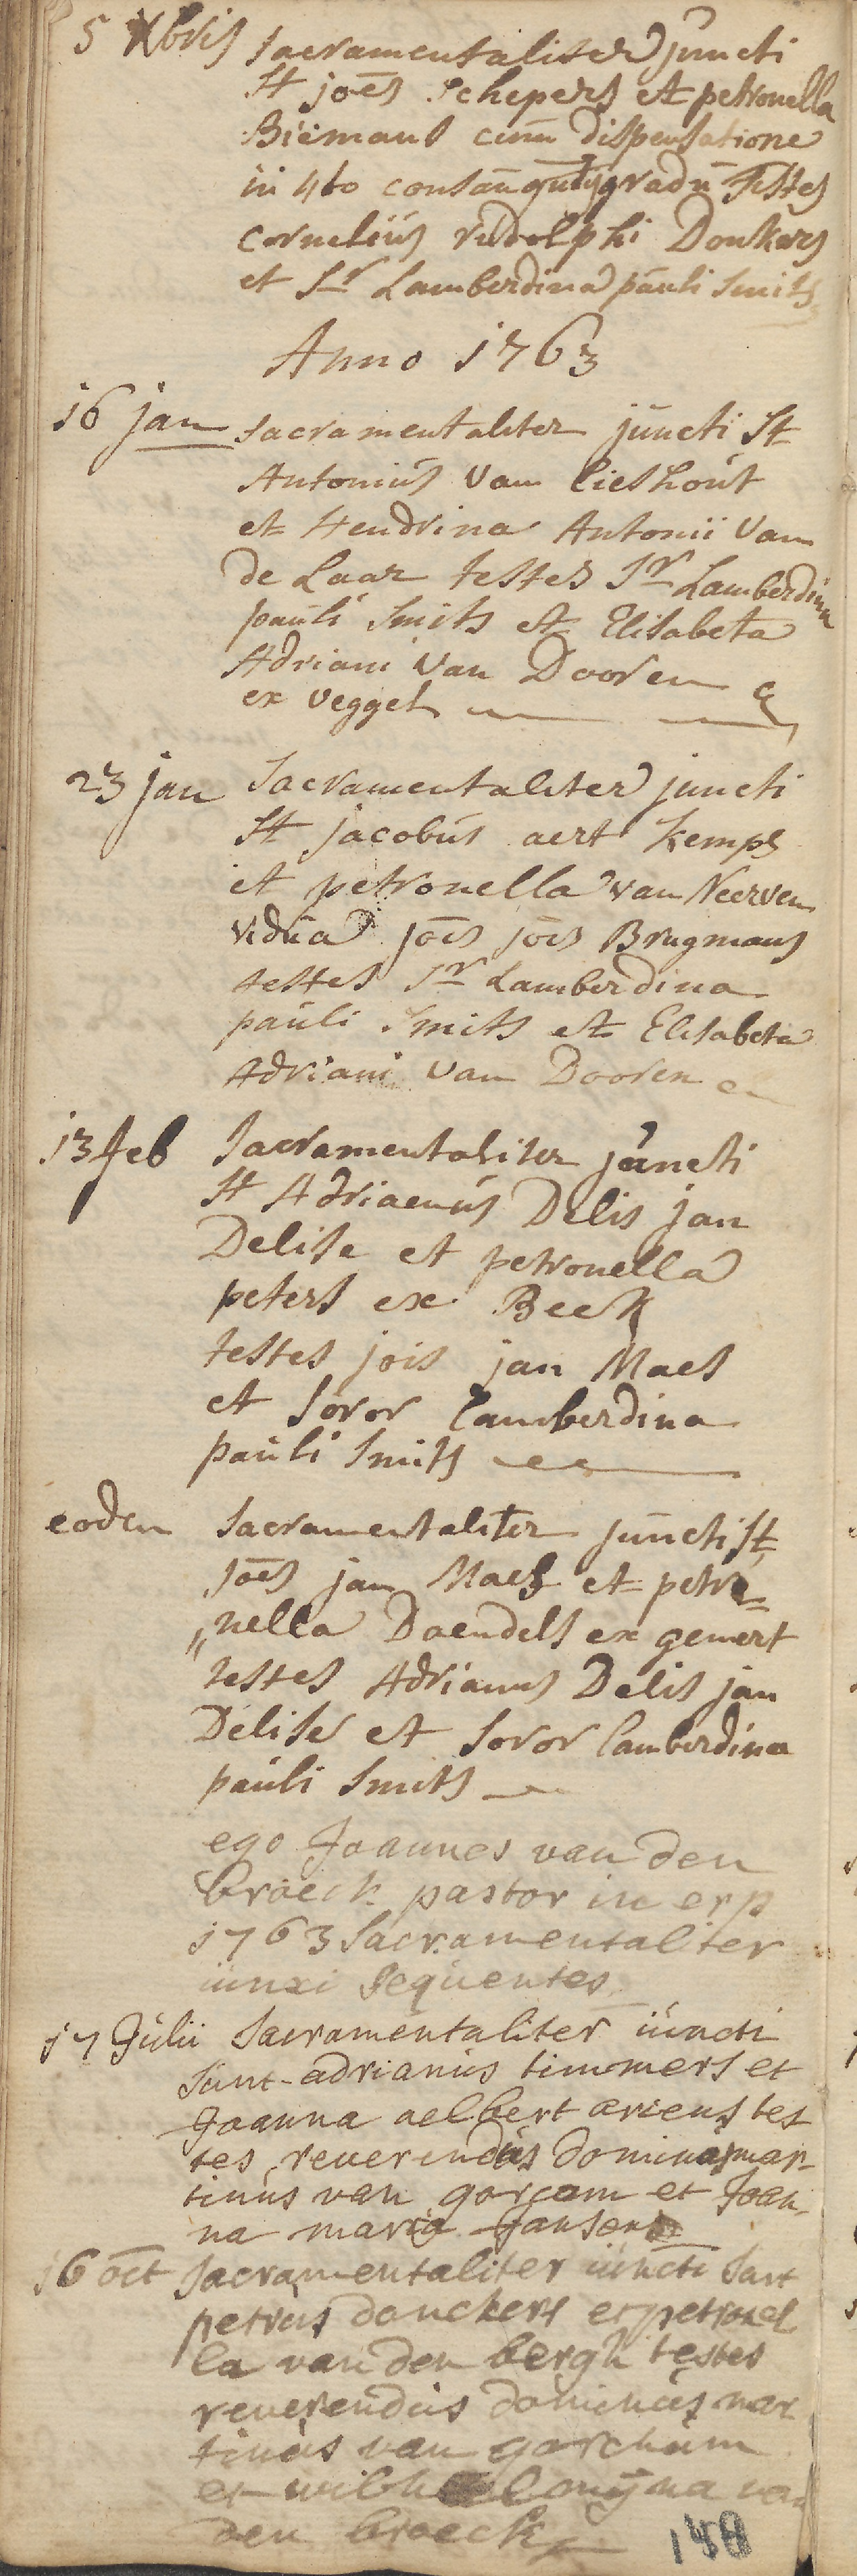 5 Xbris sacramentaliter juncti
st joēs schepers et petronella
Biemans cum dispensatione
in 4to consangutijs gradū testes
cornelius rudolphi Donkers
et Sr Lamberdina pauli Smits
Anno 1763
16 jan sacramentaliter juncti st
Antonius van Lieshout
et Hendrina Antonii van
de Laar testes Sr Lamberdina
pauli Smits et Elisabeta
Adriani van Dooren
ex veggel
23 jan Sacramentaliter juncti
st jacobus aert Kemps
et petronella van Neerven
vidua joēs joīs Brugmans
testes Sr Lamberdina
pauli Smits et Elisabeta
Adriani van Dooren
13 feb Sacramentaliter juncti
st Adriaenus Delis jan
Delise et petronella
peters ex Beek
testes jois jan Maes
et Soror Lamberdina
pauli Smits
eodem Sacramentaliter juncti st
joēs jan Maes et petro=
"nella Daendels ex gemert
testes Adrianus Delis jan
Delise et Soror Lamberdina
pauli Smits
ego Joannes van den
broeck pastor in erp
1763 Sacramentaliter
iunxi sequentes
17 Julii Sacramentaliter iuncti
sunt adrianus timmers et
Joanna aelbert ariens tes
tes reverendus dominus mar-
tinus van gorcom et Joan-
na maria Jansen
16 oct Sacramentaliter iuncti sunt
petrus donckers et petronel
la van den bergh testes
reverendus dominus mar
tinus van gorchum
et wilhelmijna van
den broeck